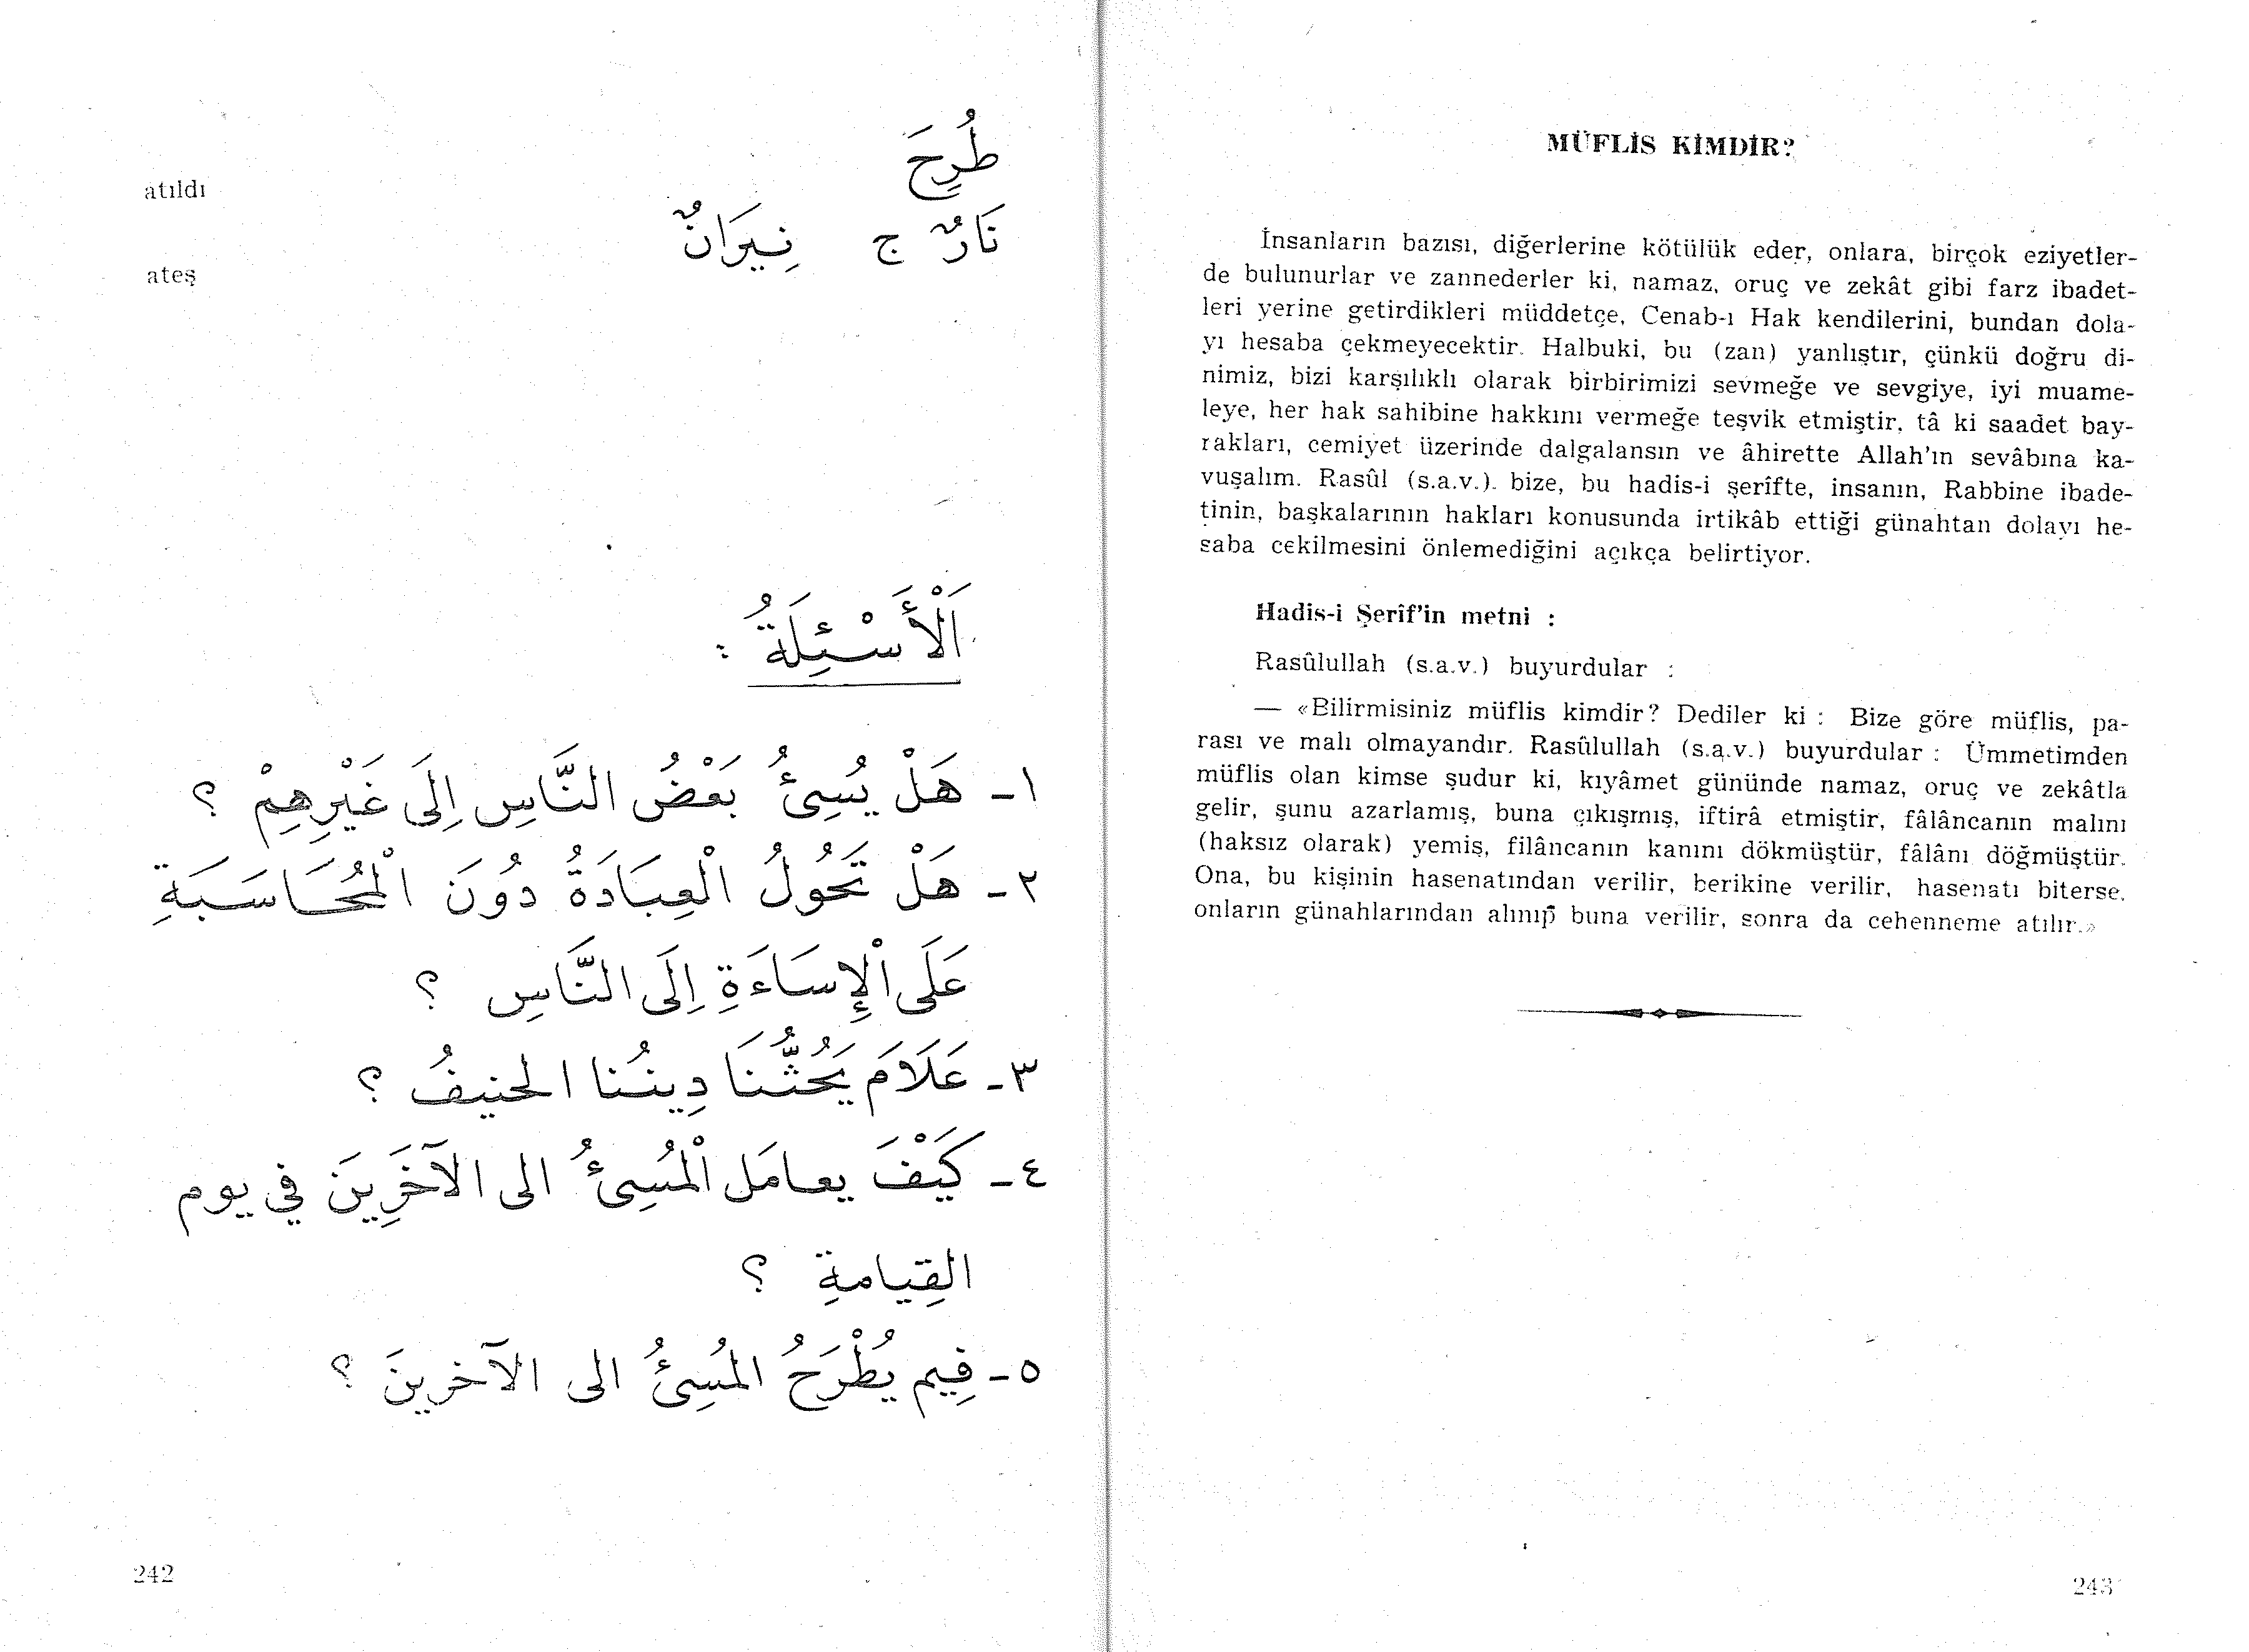 طُرِحَ
atıldı
نَارٌ ج نِيرَانٌ
ateş
اَلْأَسْئِلَةُ :
١- هَلْ يُسِئُ بَعْضُ النَّاسِ إِلَى غَيْرِهِمْ ؟
٢- هَلْ تَحُولُ الْعِبَادَةُ دُونَ الْمُحَاسَبَةِ
عَلَى الْإِسَاءَةِ إِلَى النَّاسِ ؟
٣- عَلَامَ يَحُثُّنَا دِينُنا الحنيفُ ؟
٤- كَيْفَ يعامَل الْمُسِئُ الى الآخَرِينَ في يوم
القِيامةِ ؟
٥- فِيم يُطْرَحُ المُسِئُ الى الآخرينَ ؟
242
MÜFLİS KİMDİR?
İnsanların bazısı, diğerlerine kötülük eder, onlara, birçok eziyetler-
de bulunurlar ve zannederler ki, namaz, oruç ve zekât gibi farz ibadet-
leri yerine getirdikleri müddetçe, Cenab-ı Hak kendilerini, bundan dola-
yı hesaba çekmeyecektir. Halbuki, bu (zan) yanlıştır, çünkü doğru di-
nimiz, bizi karşılıklı olarak birbirimizi sevmeğe ve sevgiye, iyi muame-
leye, her hak sahibine hakkını vermeğe teşvik etmiştir, tâ ki saadet bay-
rakları, cemiyet üzerinde dalgalansın ve âhirette Allah'ın sevâbına ka-
vuşalım. Rasûl (s.a.v.). bize, bu hadis-i şerîfte, insanın, Rabbine ibade-
tinin, başkalarının hakları konusunda irtikâb ettiği günahtan dolayı he-
saba cekilmesini önlemediğini açıkça belirtiyor.
Hadis-i Şerîf'in metni :
Rasûlullah (s.a.v.) buyurdular :
— «Bilirmisiniz müflis kimdir? Dediler ki : Bize göre müflis, pa-
rası ve malı olmayandır. Rasûlullah (s.a.v.) buyurdular : Ümmetimden
müflis olan kimse şudur ki, kıyâmet gününde namaz, oruç ve zekâtla
gelir, şunu azarlamış, buna çıkışmış, iftirâ etmiştir, fâlâncanın malını
(haksız olarak) yemiş, filâncanın kanını dökmüştür, fâlânı döğmüştür.
Ona, bu kişinin hasenatından verilir, berikine verilir, hasenatı biterse,
onların günahlarından alınıp buna verilir, sonra da cehenneme atılır.»
243